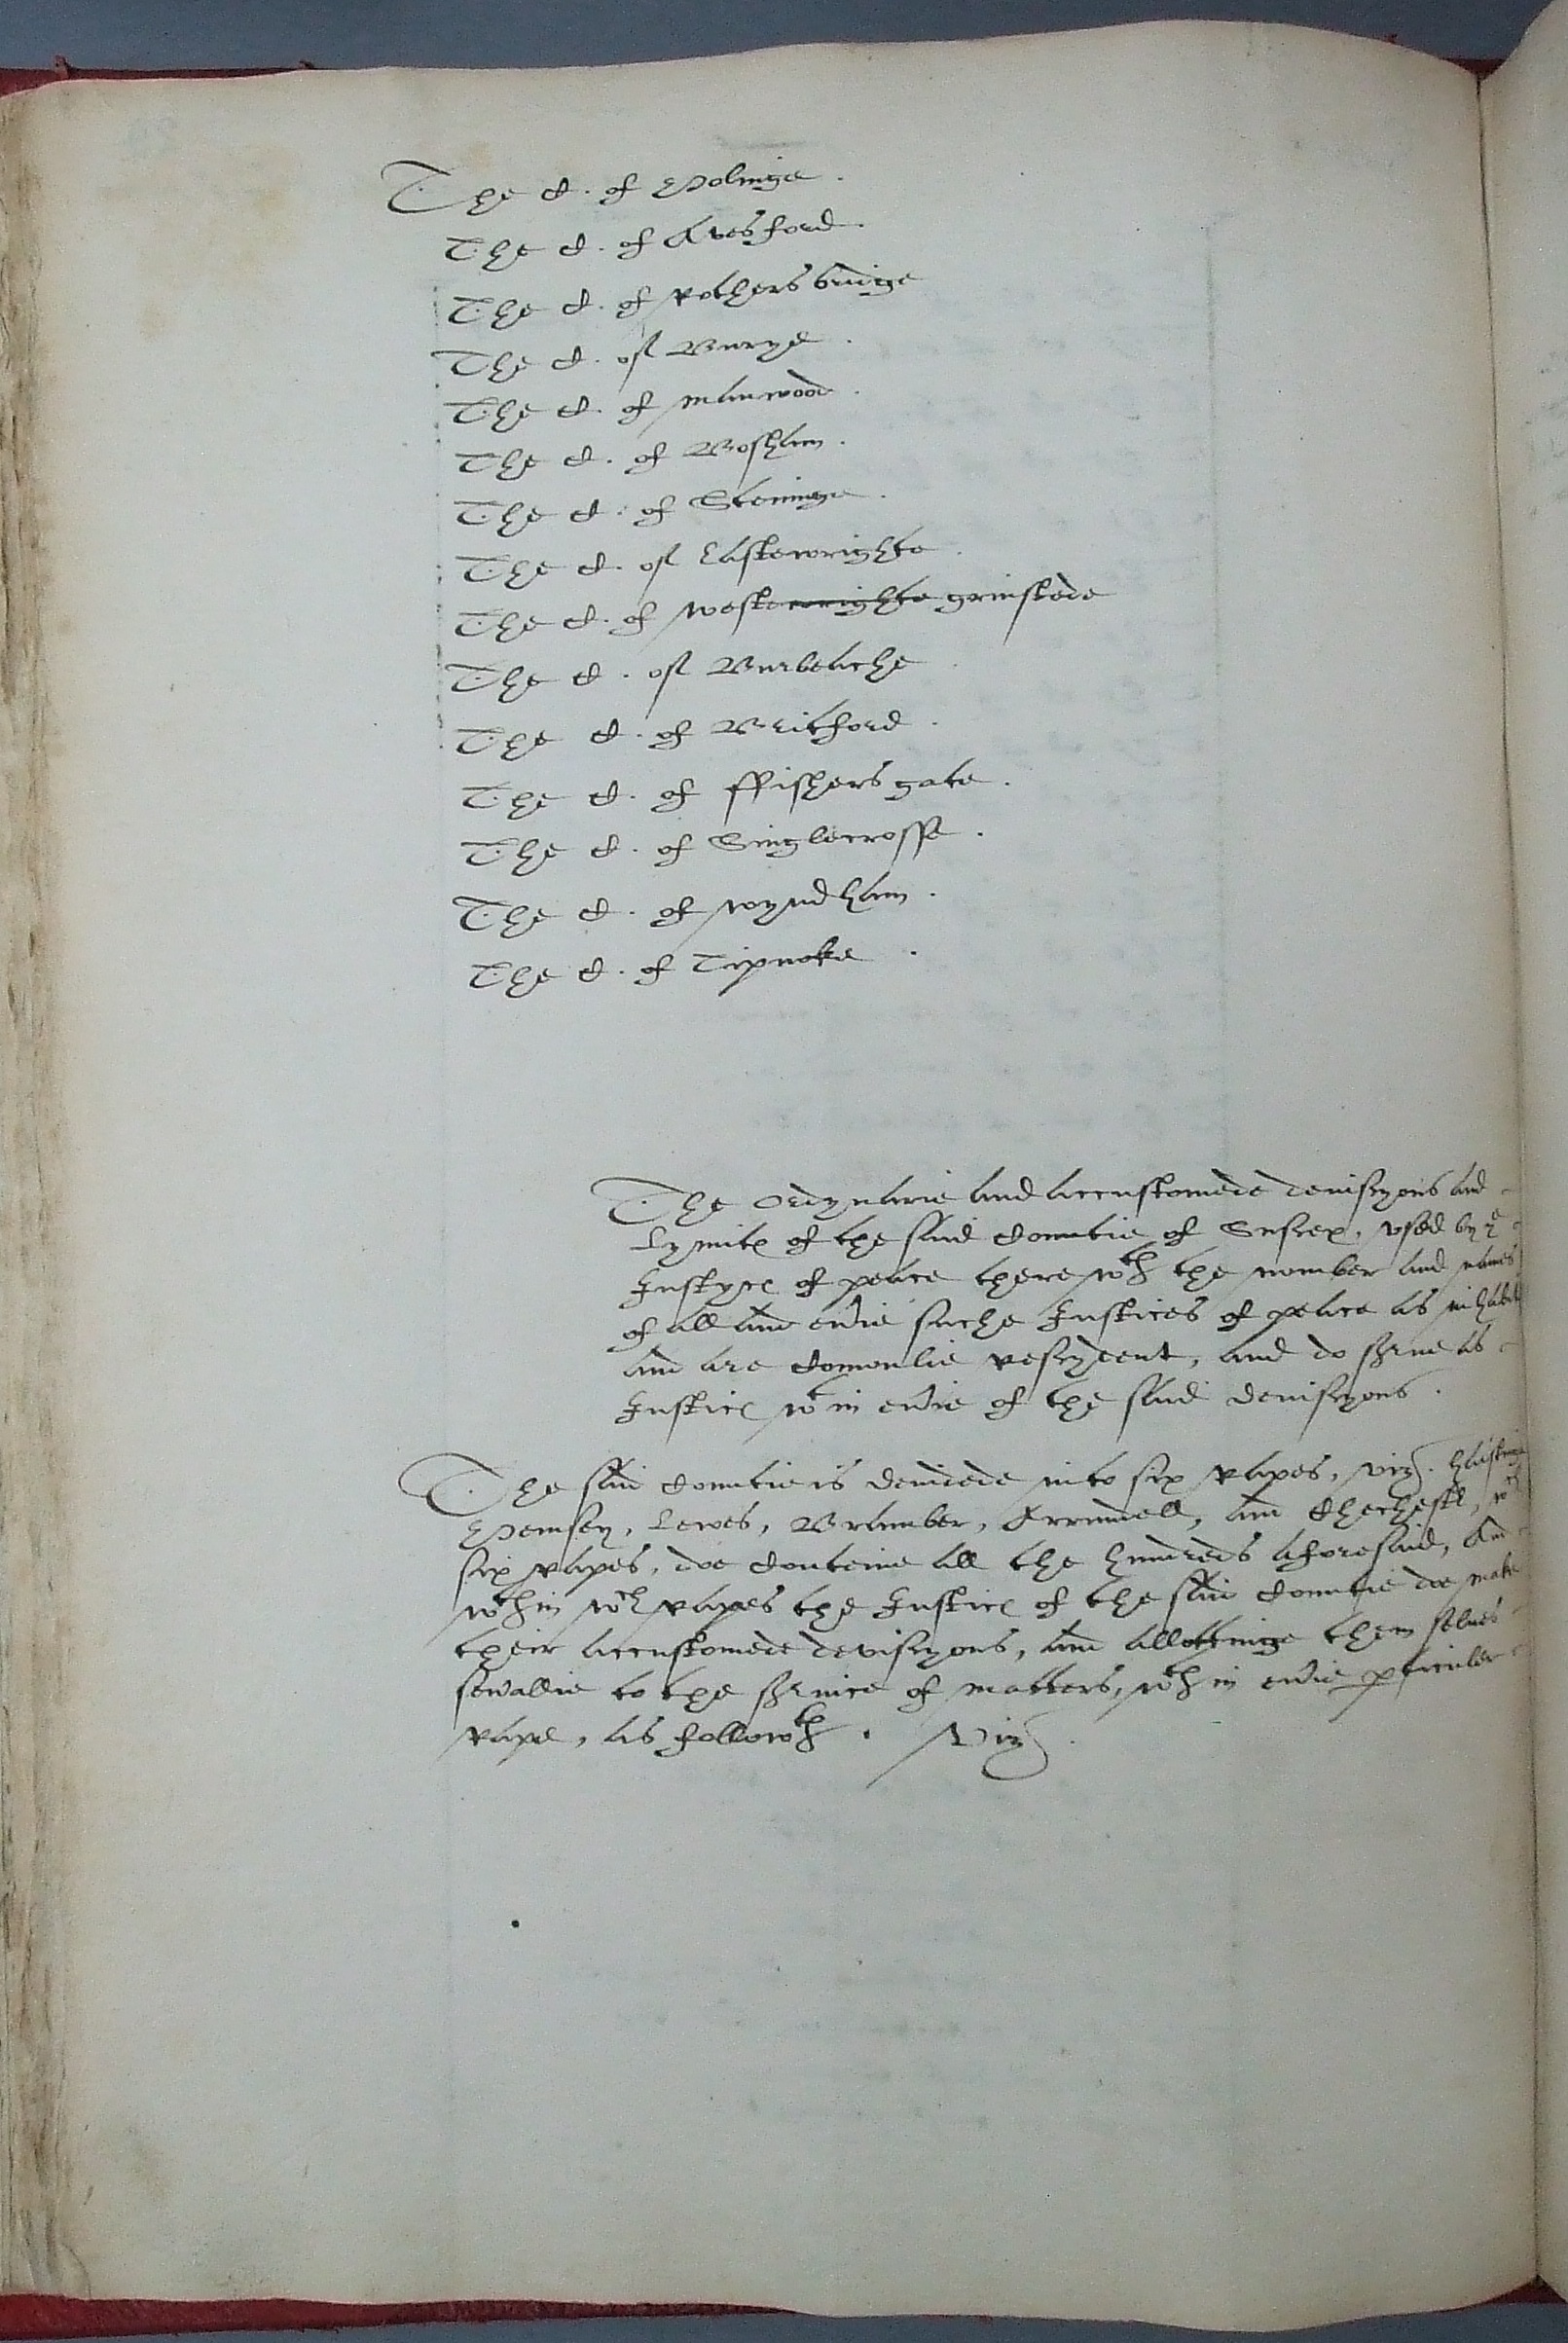 The C. of Polinge.
The C. of Avesford.
The C. of Rothersbridge
The C. of Burye.
The C. of Manwood.
The C. of Bosham.
The C. of Steninge.
The C. of Eastewrighte.
The C. of Westewrighte grinstede
The C. of Burbeache
The C. of Britford.
The C. of ffishersgate.
The C. of Singlecrosse.
The C. of Wyndham.
The C. of Tipnoke.
The ordynarie and accustomede devisyons and
Lymite of the said Countie of Sussex, vsed by ye
Justyce of peace there wth the nomber and names
of all and euie suche Justices of peace as inhabit
and are Comonlie resydent, and do serue as
Justice wtin euie of the said devisyons.
The said Countie is devidede into six Rapes, viz. Hastinge
Pemsey, Lewes, Bramber, Arrundell, and Chechestr, wch
six rapes, doe Conteine all the hundreds aforesaid, And
wthin wch rapes the Justice of the said Countie doe make
their accustomede devisyons, and allottinge them selues
seuallie to the seruice of matters, wthin euie pticuler
rape, as followth. Viz.